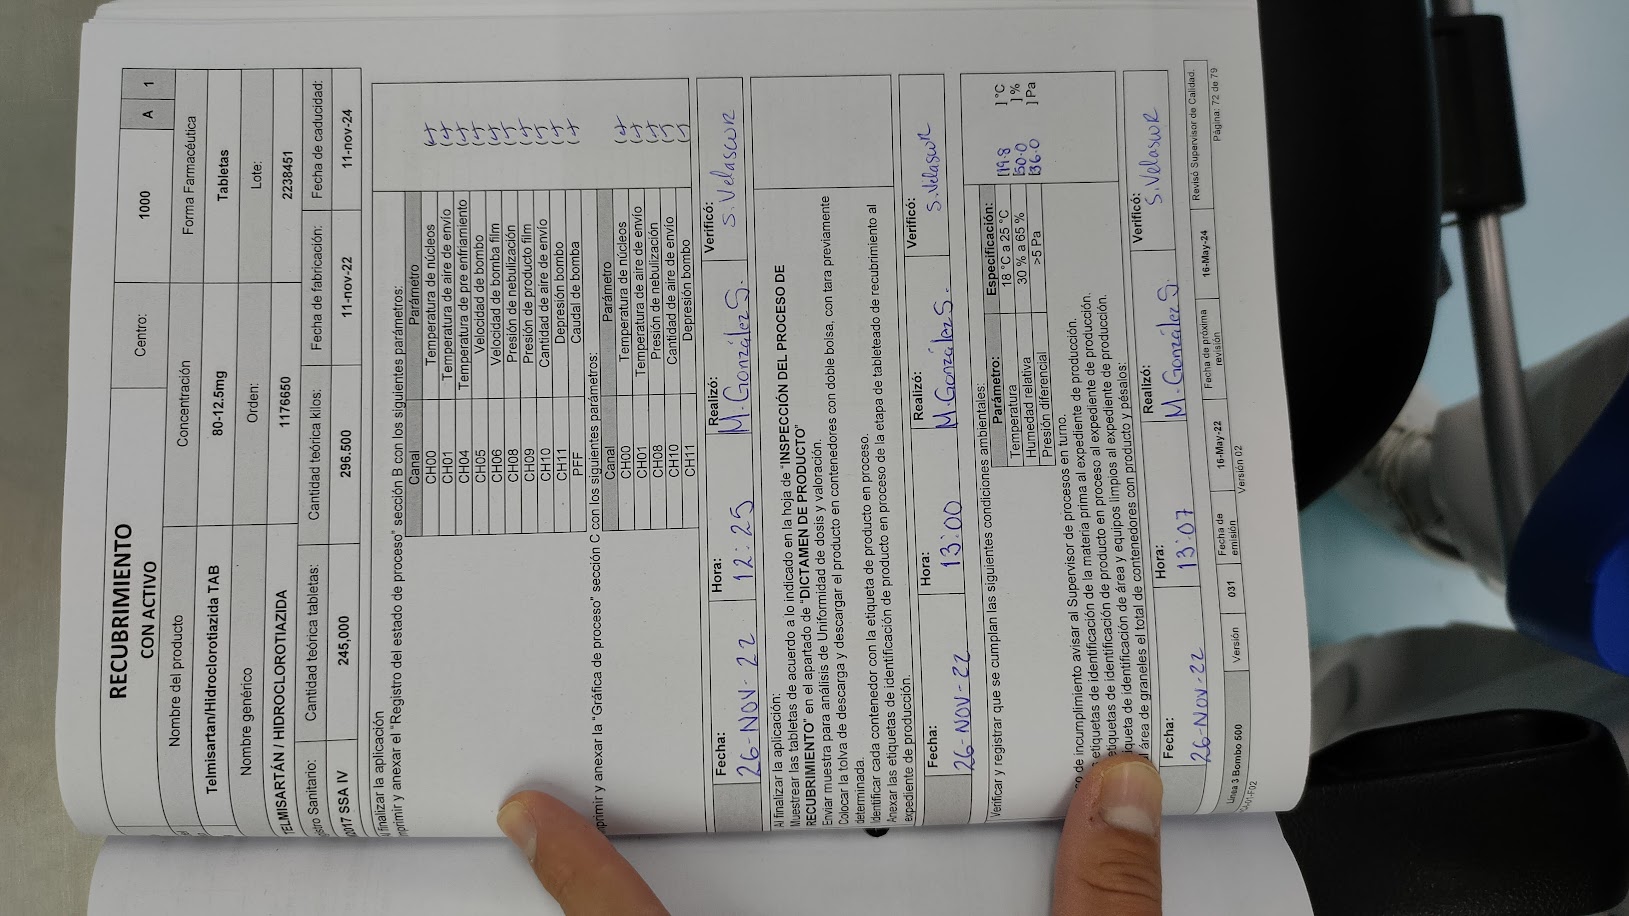 RECUBRIMIENTO
CON ACTIVO
Centro:
1000
A
1
Nombre del producto
Concentración
Forma Farmacéutica
Telmisartan/Hidroclorotiazida TAB
80-12.5mg
Tabletas
Nombre genérico
Orden:
Lote:
TELMISARTÁN / HIDROCLOROTIAZIDA
1176650
2238451
stro Sanitario:
Cantidad teórica tabletas:
Cantidad teórica kilos:
Fecha de fabricación:
Fecha de caducidad:
2017 SSA IV
245,000
296.500
11-nov-22
11-nov-24
l finalizar la aplicación
mprimir y anexar el "Registro del estado de proceso" sección B con los siguientes parámetros:
Canal Parámetro
CH00 Temperatura de núcleos
CH01 Temperatura de aire de envío
CH04 Temperatura de pre enfriamiento
CH05 Velocidad de bombo
CH06 Velocidad de bomba film
CH08 Presión de nebulización
CH09 Presión de producto film
CH10 Cantidad de aire de envío
CH11 Depresión bombo
PFF Caudal de bomba
mprimir y anexar la "Gráfica de proceso" sección C con los siguientes parámetros:
Canal Parámetro
CH00 Temperatura de núcleos
CH01 Temperatura de aire de envío
CH08 Presión de nebulización
CH10 Cantidad de aire de envío
CH11 Depresión bombo
Fecha: Hora: Realizó: Verificó:
26-NOV-22 12:25 M.González S. S.VelascoR
Al finalizar la aplicación:
Muestrear las tabletas de acuerdo a lo indicado en la hoja de "INSPECCIÓN DEL PROCESO DE
RECUBRIMIENTO" en el apartado de "DICTAMEN DE PRODUCTO"
Enviar muestra para análisis de Uniformidad de dosis y valoración.
Colocar la tolva de descarga y descargar el producto en contenedores con doble bolsa, con tara previamente
determinada.
Identificar cada contenedor con la etiqueta de producto en proceso.
Anexar las etiquetas de identificación de producto en proceso de la etapa de tableteado de recubrimiento al
expediente de producción.
Fecha: Hora: Realizó: Verificó:
26-NOV-22 13:00 M.González S. S.VelascoR
Verificar y registrar que se cumplan las siguientes condiciones ambientales:
Parámetro: Especificación:
Temperatura 18 °C a 25 °C [19.8 ] °C
Humedad relativa 30 % a 65 % [50.0 ] %
Presión diferencial >5 Pa [36.0 ] Pa
o de incumplimiento avisar al Supervisor de procesos en turno.
etiquetas de identificación de la materia prima al expediente de producción.
etiquetas de identificación de producto en proceso al expediente de producción.
iqueta de identificación de área y equipos limpios al expediente de producción.
l área de graneles el total de contenedores con producto y pésalos:
Fecha: Hora: Realizó: Verificó:
26-NOV-22 13:07 M.González S. S.VelascoR
Línea 3 Bombo 500
-01-F02
Versión
031
Fecha de
emisión
16-May-22
Fecha de próxima
revisión
16-May-24
Revisó Supervisor de Calidad.
Versión 02
Página: 72 de 79